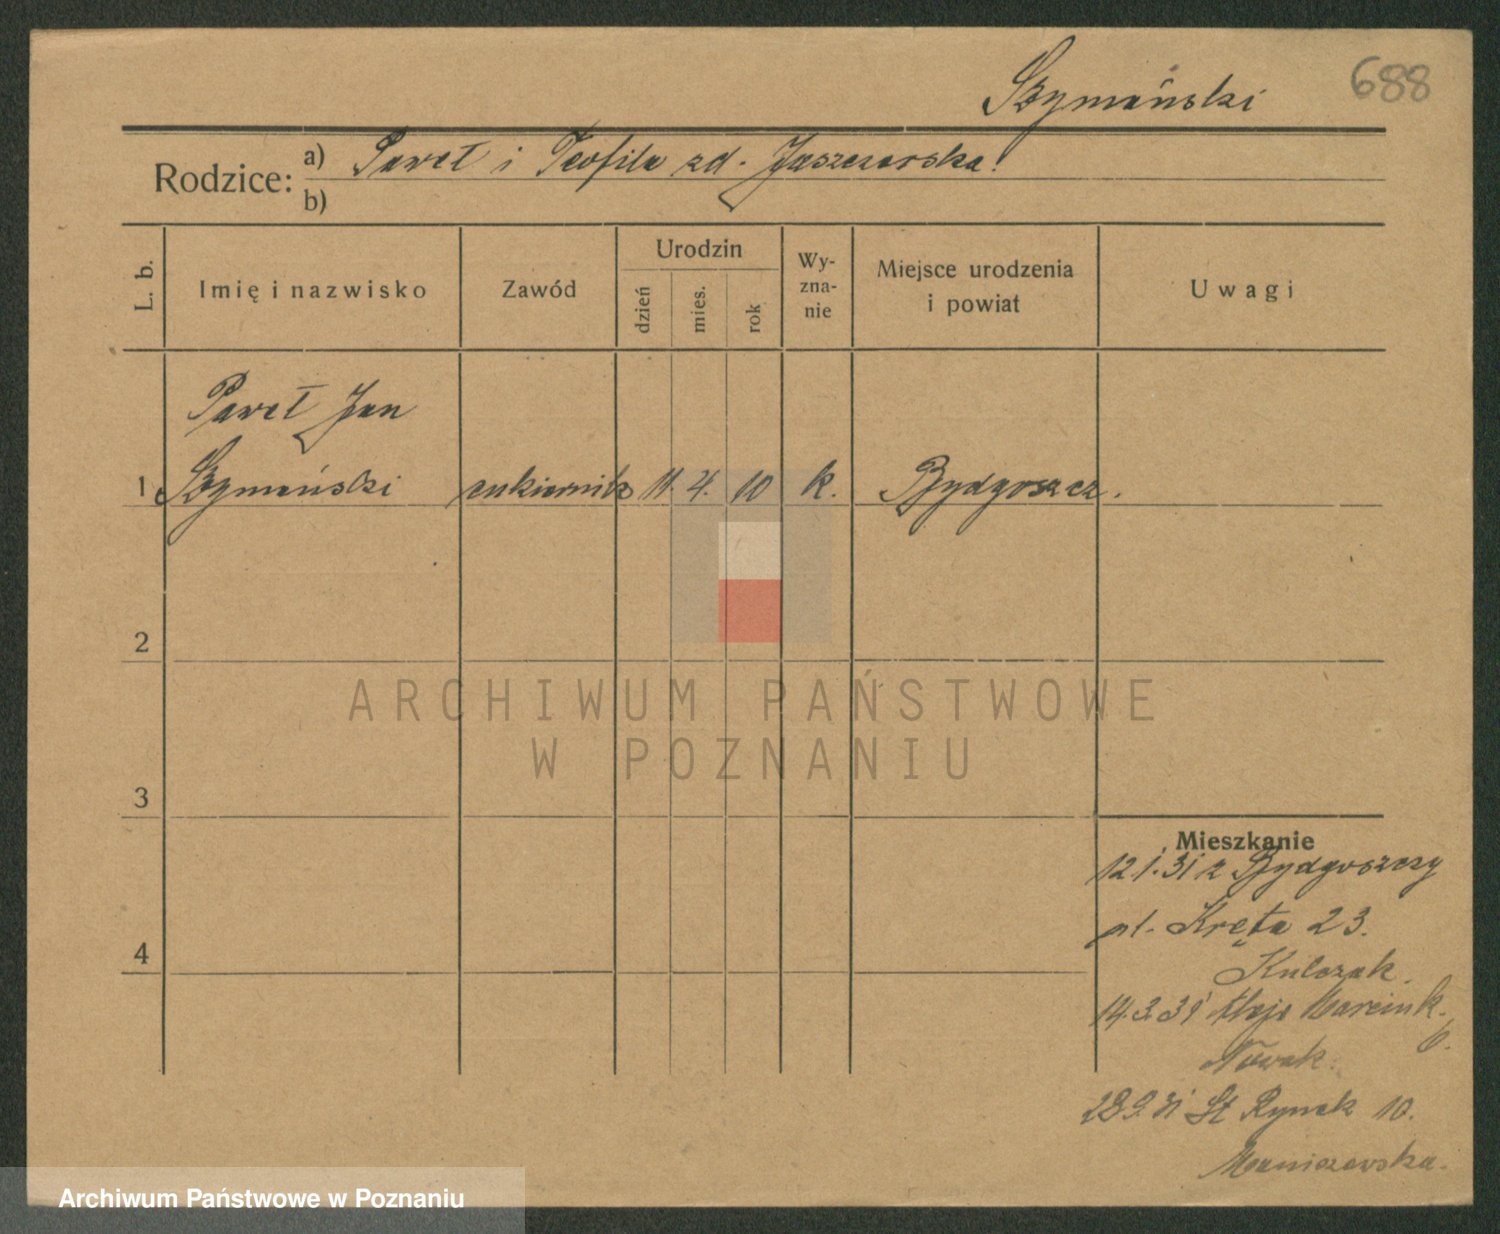 688
Szymański
Rodzice:
a) Paweł i Teofila zd. Jaszczerska.
b)
L. b.
Imię i nazwisko
Zawód
Urodzin
dzień
mies.
rok
Wy-
zna-
nie
Miejsce urodzenia
i powiat
Uwagi
Paweł Jan
1 Szymański cukiernik 11. 4. 10 k. Bydgoszcz.
2
ARCHIWUM PAŃSTWOWE
W POZNANIU
3
4
Mieszkanie
12.1.31 z Bydgoszczy
ul. Kręta 23.
Kulczak.
14.3.31 Aleje Marcink. 6.
Nowak.
28.9.31 St Rynek 10.
Archiwum Państwowe w Poznaniu